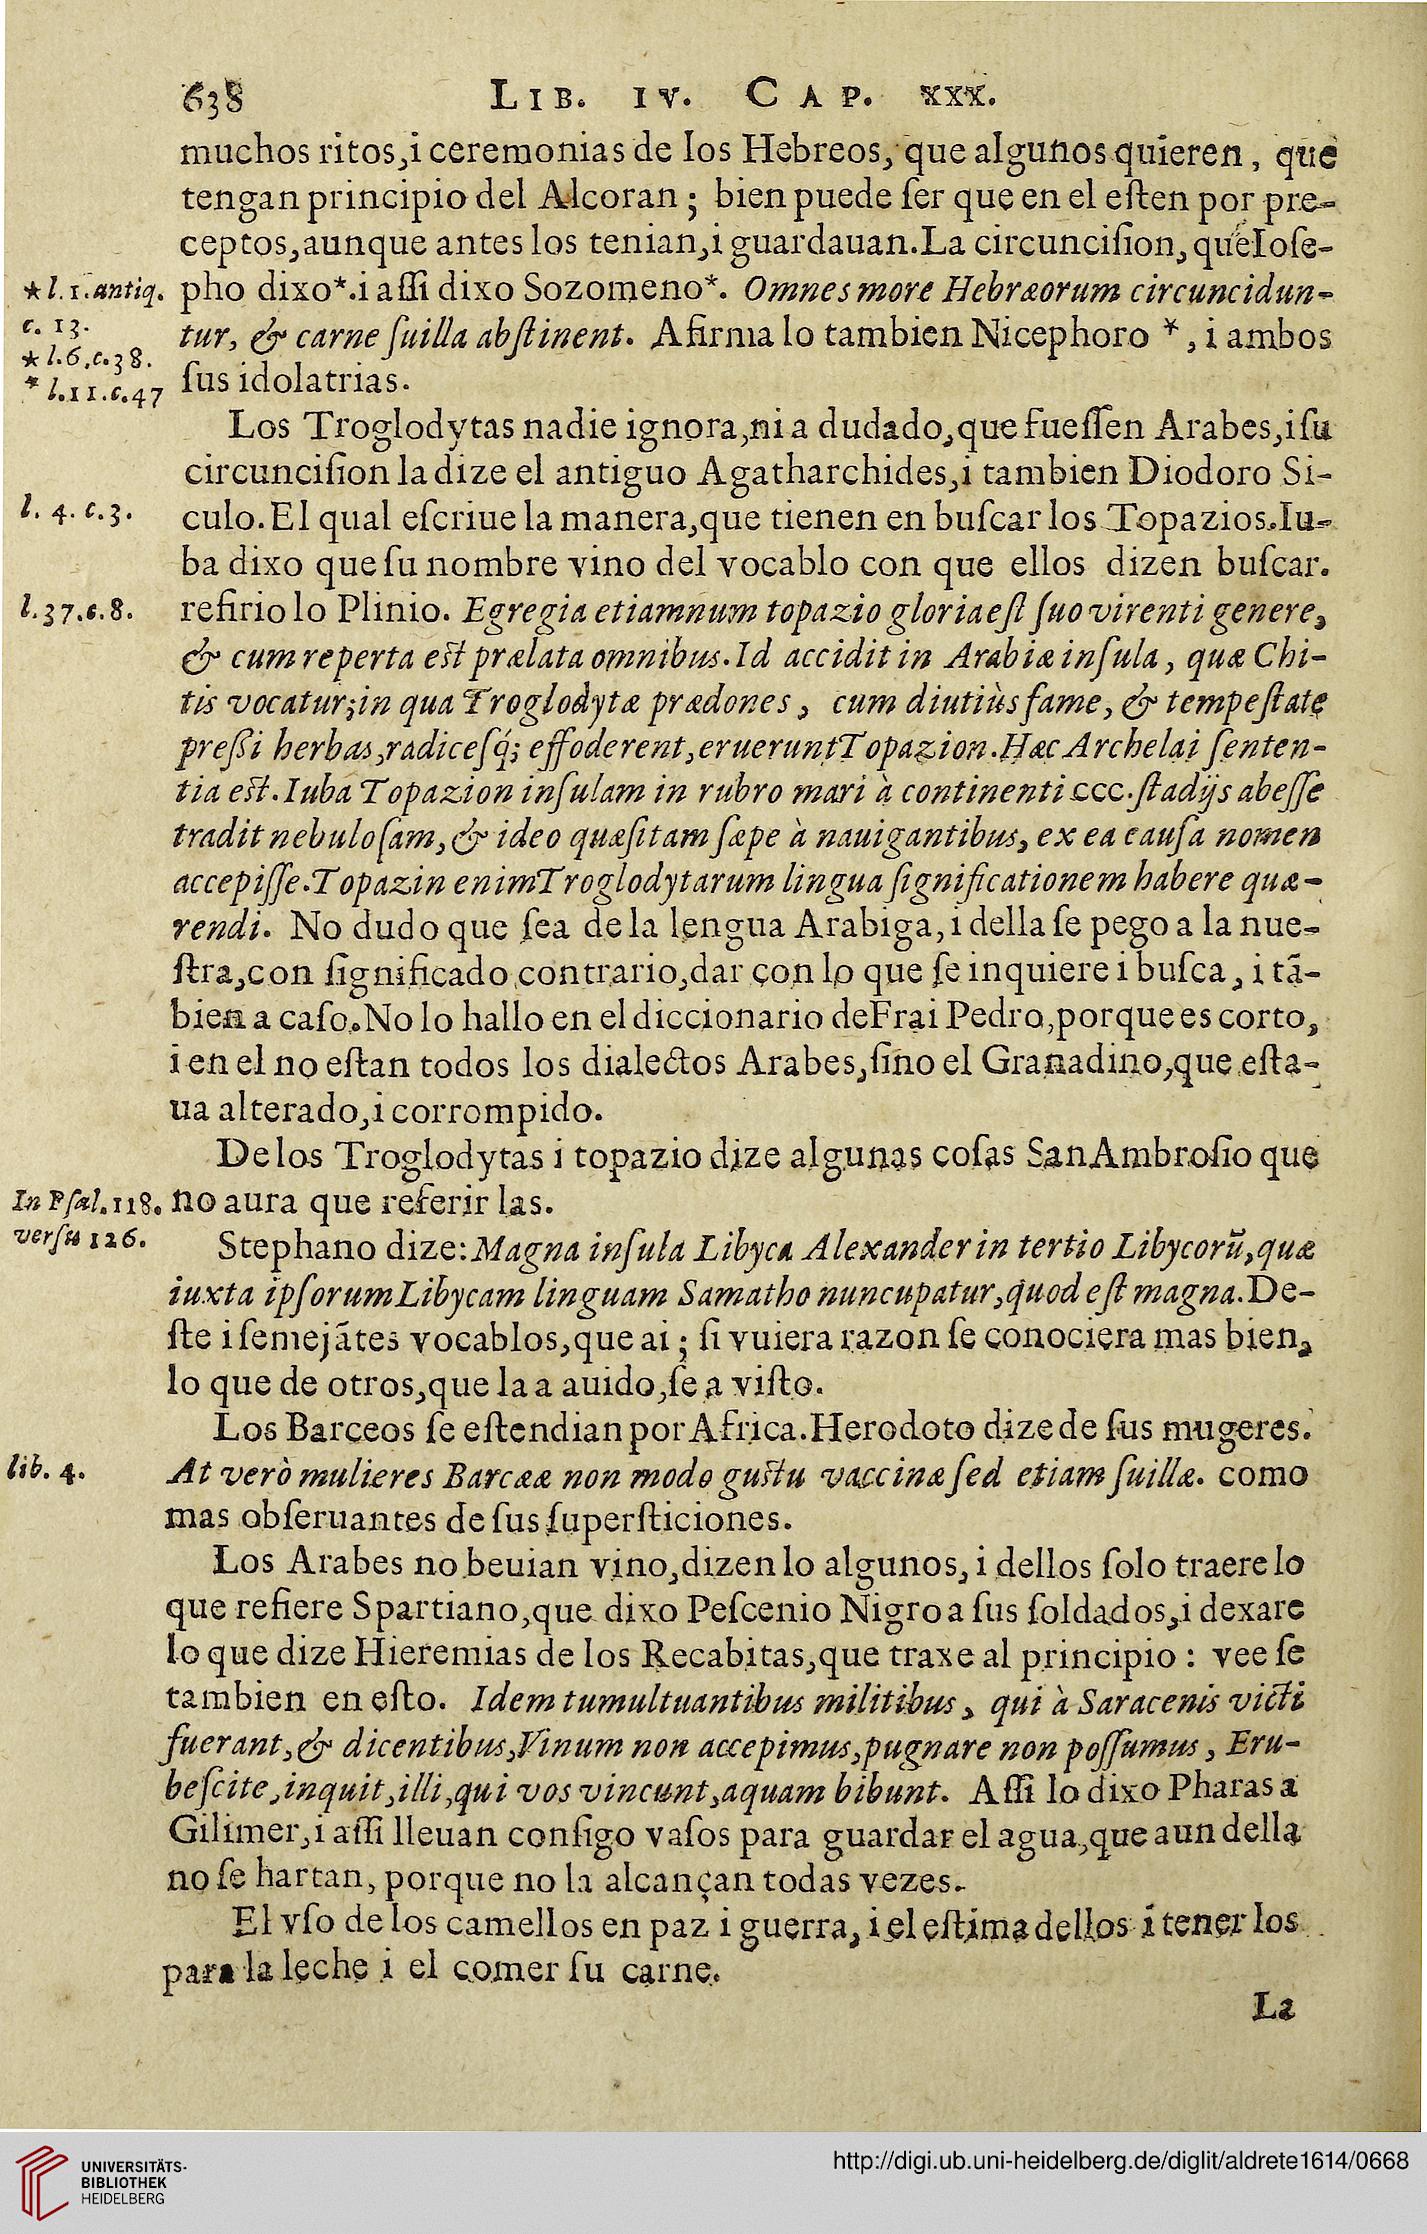 638 LIB. IV. CAP. XXX.
muchos ritos,i ceremonias de los Hebreos, que algunos quieren, que
tengan principio del Alcoran; bien puede ſer que en el eſten por pre-
ceptos,aunque antes los tenian,i guardauan.La circunciſion, que Ioſe-
*l.1.antiq. pho dixo*.i aſſi dixo Sozomeno*. Omnes more Hebræorum circuncidun-
c. 13. tur, & carne ſuilla abſtinent. Afirma lo tambien Nicephoro *, i ambos
*l.6.c.38.
*l.11.c.47 ſus idolatrias.
Los Troglodytas nadie ignora,ni a dudado,que fueſſen Arabes,i ſu
circunciſion la dize el antiguo Agatharchides,i tambien Diodoro Si-
l. 4. c.3. culo.El qual eſcriue la manera,que tienen en buſcar los Topazios.Iu-
ba dixo que ſu nombre vino del vocablo con que ellos dizen buſcar.
l.37.c.8. refirio lo Plinio. Egregia etiamnum topazio gloria eſt ſuo virenti genere,
& cum reperta eſt prælata omnibus.Id accidit in Arabiæ inſula, quæ Chi-
tis vocatur;in qua Troglodytæ prædones, cum diutiùs fame, & tempeſtate
preſsi herbas,radiceſq́; effoderent,eruerunt Topazion.Hæc Archelai ſenten-
tia eſt.Iuba Topazion inſulam in rubro mari à continenti ccc.ſtadijs abeſſe
tradit nebuloſam,& ideo quæſitam ſæpe à nauigantibus, ex ea cauſa nomen
accepiſſe.Topazin enim Troglodytarum lingua ſignificationem habere quæ-
rendi. No dudo que ſea de la lengua Arabiga, i della ſe pego a la nue-
ſtra,con ſignificado contrario,dar con lo que ſe inquiere i buſca, i tã-
bien a caſo.No lo hallo en el diccionario de Frai Pedro,porque es corto,
i en el no eſtan todos los dialectos Arabes,ſino el Granadino,que eſta-
ua alterado,i corrompido.
De los Troglodytas i topazio dize algunas coſas San Ambroſio que
In Pſal.118. no aura que referir las.
verſu 126. Stephano dize:Magna inſula Libyca Alexander in tertio Libycorũ,quæ
iuxta ipſorum Libycam linguam Samatho nuncupatur,quod eſt magna.De-
ſte i ſemejãtes vocablos,que ai; ſi vuiera razon ſe conociera mas bien,
lo que de otros,que la a auido,ſe a viſto.
Los Barceos ſe eſtendian por Africa.Herodoto dize de ſus mugeres.
lib. 4. At verò mulieres Barcææ non modo guſtu vaccinæ ſed etiam ſuillæ. como
mas obſeruantes de ſus ſuperſticiones.
Los Arabes no beuian vino,dizen lo algunos, i dellos ſolo traere lo
que refiere Spartiano,que dixo Peſcenio Nigro a ſus ſoldados,i dexare
lo que dize Hieremias de los Recabitas,que traxe al principio: vee ſe
tambien en eſto. Idem tumultuantibus militibus, qui à Saracenis victi
fuerant,& dicentibus,Vinum non accepimus,pugnare non poſſumus, Eru-
beſcite,inquit,illi,qui vos vincunt,aquam bibunt. Aſſi lo dixo Pharas a
Gilimer,i aſſi lleuan conſigo vaſos para guardar el agua,que aun della
no ſe hartan, porque no la alcançan todas vezes.
El vſo de los camellos en paz i guerra, i el eſtima dellos i tener los
para la leche i el comer ſu carne.
La
UNIVERSITÄTS-
BIBLIOTHEK
HEIDELBERG
http://digi.ub.uni-heidelberg.de/diglit/aldrete1614/0668